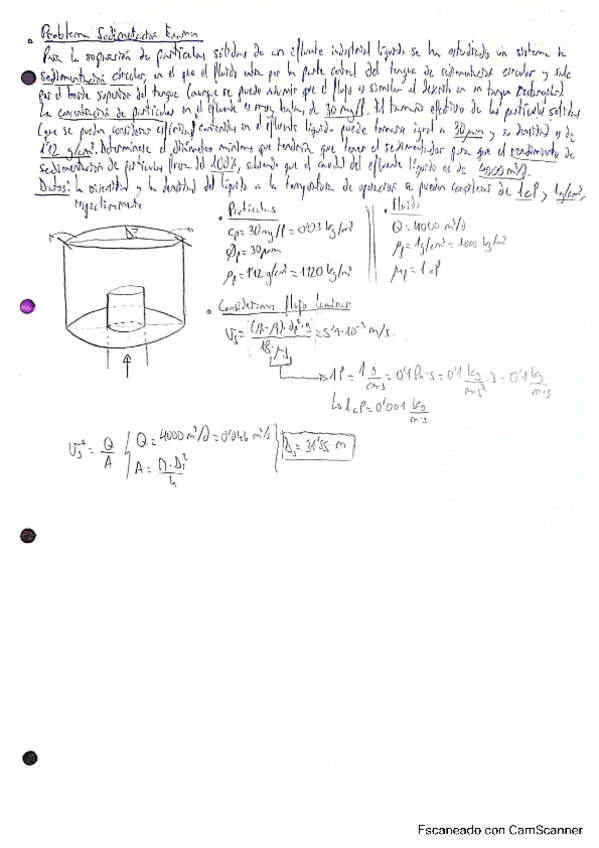 Problema Sedimentación Examen
Para la separación de partículas sólidas de un efluente industrial líquido se ha estudiado un sistema de
sedimentación circular, en el que el fluido entra por la parte central del tanque de sedimentación circular y sale
por el borde superior del tanque (aunque se puede asumir que el flujo es similar al descrito en un tanque rectangular).
La concentración de partículas en el efluente es muy baja, de 30 mg/l. El tamaño efectivo de las partículas sólidas
(que se pueden considerar esféricas) contenidas en el efluente líquido puede tomarse igual a 30 µm y su densidad es de
1'12 g/cm³. Determínese el diámetro mínimo que tendría que tener el sedimentador para que el rendimiento de
sedimentación de partículas fuera del 100%, sabiendo que el caudal del efluente líquido es de 4000 m³/d.
Datos: La viscosidad y la densidad del líquido a la temperatura de operación se pueden considerar de 1 cP y 1 g/cm³,
respectivamente
Partículas
Cp = 30 mg/l = 0'03 kg/m³
Øp = 30 µm
ρp = 1'12 g/cm³ = 1120 kg/m³
Fluido
Q = 4000 m³/d
ρf = 1 g/cm³ = 1000 kg/m³
µf = 1 cP
Ds
Consideramos flujo laminar
Us = (ρp - ρf) · dp² · g / 18 · µf = 5'9 · 10⁻⁵ m/s.
1P = 1 g/cm·s = 0'1 Pa·s = 0'1 kg/m·s² · s = 0'1 kg/m·s
↳ 1 cP = 0'001 kg/m·s
Us = Q/A
Q = 4000 m³/d = 0'046 m³/s
A = π · Ds²/4
Ds = 31'55 m
Escaneado con CamScanner